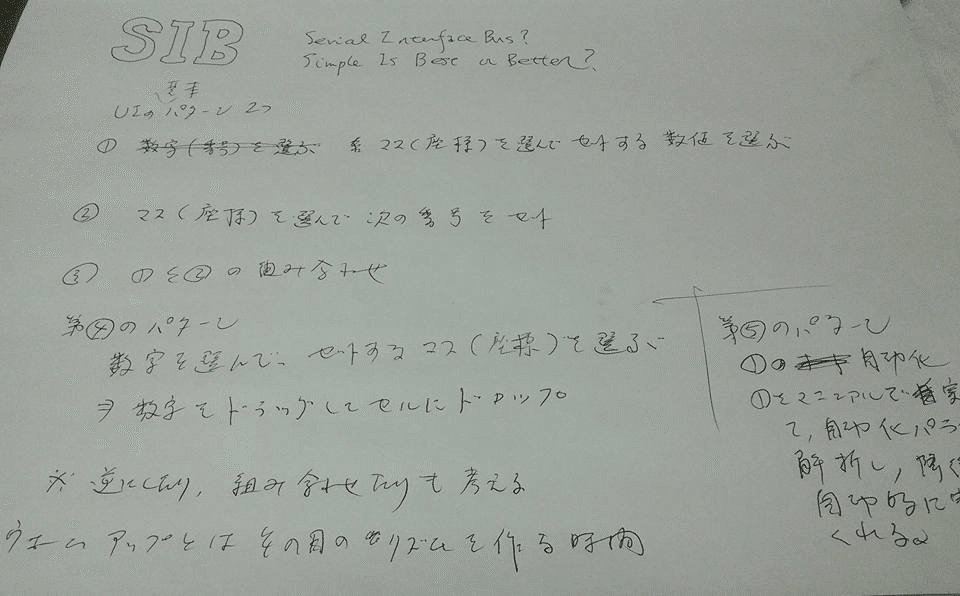 SIB
Serial Interface Bus?
Simple Is Best or Better?
基本
UIのパターン 2つ
① 数字(番号)を選ぶ マス(座標)を選んで セットする 数値を選ぶ
② マス(座標)を選んで 次の番号をセット
③ ①と②の組み合わせ
第④のパターン
数字を選んで、セットするマス(座標)を選ぶ
⇒ 数字をドラッグしてセルにドロップ
※ 逆にしたり、組み合わせたりも考える
ウォームアップとはその日のリズムを作る時間
第⑤のパターン
①の 自動化
①をマニュアルで
て、自動化パラ
解析し、
自動的に
くれる。